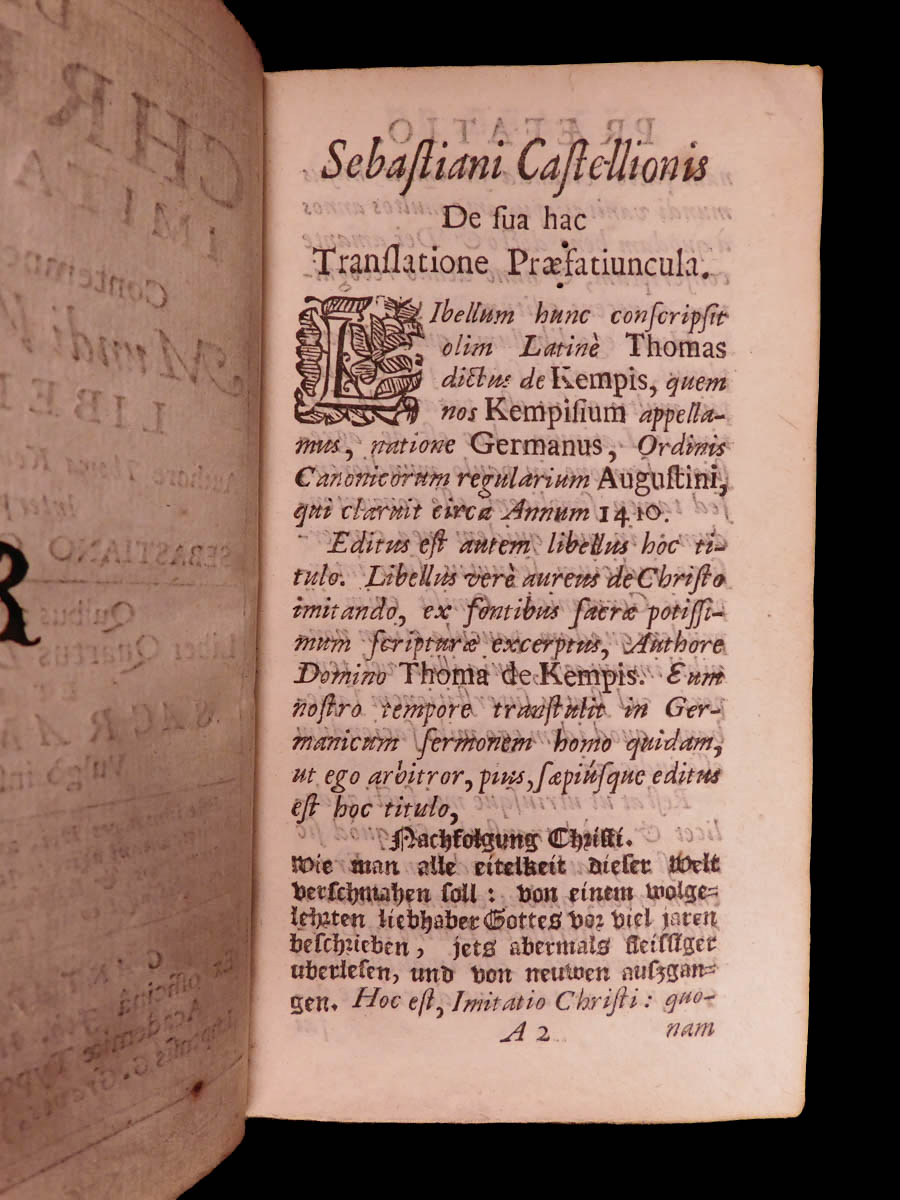 Sebaſtiani Caſtellionis
De ſua hac
Tranſlatione Præfatiuncula.
LIbellum hunc conſcripſit
olim Latinè Thomas
dictus de Kempis, quem
nos Kempiſium appella-
mus, natione Germanus, Ordinis
Canonicorum regularium Auguſtini,
qui claruit circa Annum 1410.
Editus eſt autem libellus hoc ti-
tulo. Libellus verè aureus de Chriſto
imitando, ex fontibus ſacræ potiſſi-
mum ſcripturæ excerptus, Authore
Domino Thoma de Kempis. Eum
noſtro tempore tranſtulit in Ger-
manicum ſermonem homo quidam,
ut ego arbitror, pius, ſæpiúſque editus
eſt hoc titulo,
Nachfolgung Chriſti.
Wie man alle eitelkeit dieſer Welt
verſchmahen ſoll: von einem wolge-
lehrten liebhaber Gottes vor viel jaren
beſchrieben, jets abermals fleiſſiger
uberleſen, und von neuwen auſzgan-
gen. Hoc eſt, Imitatio Chriſti: quo-
A 2 nam